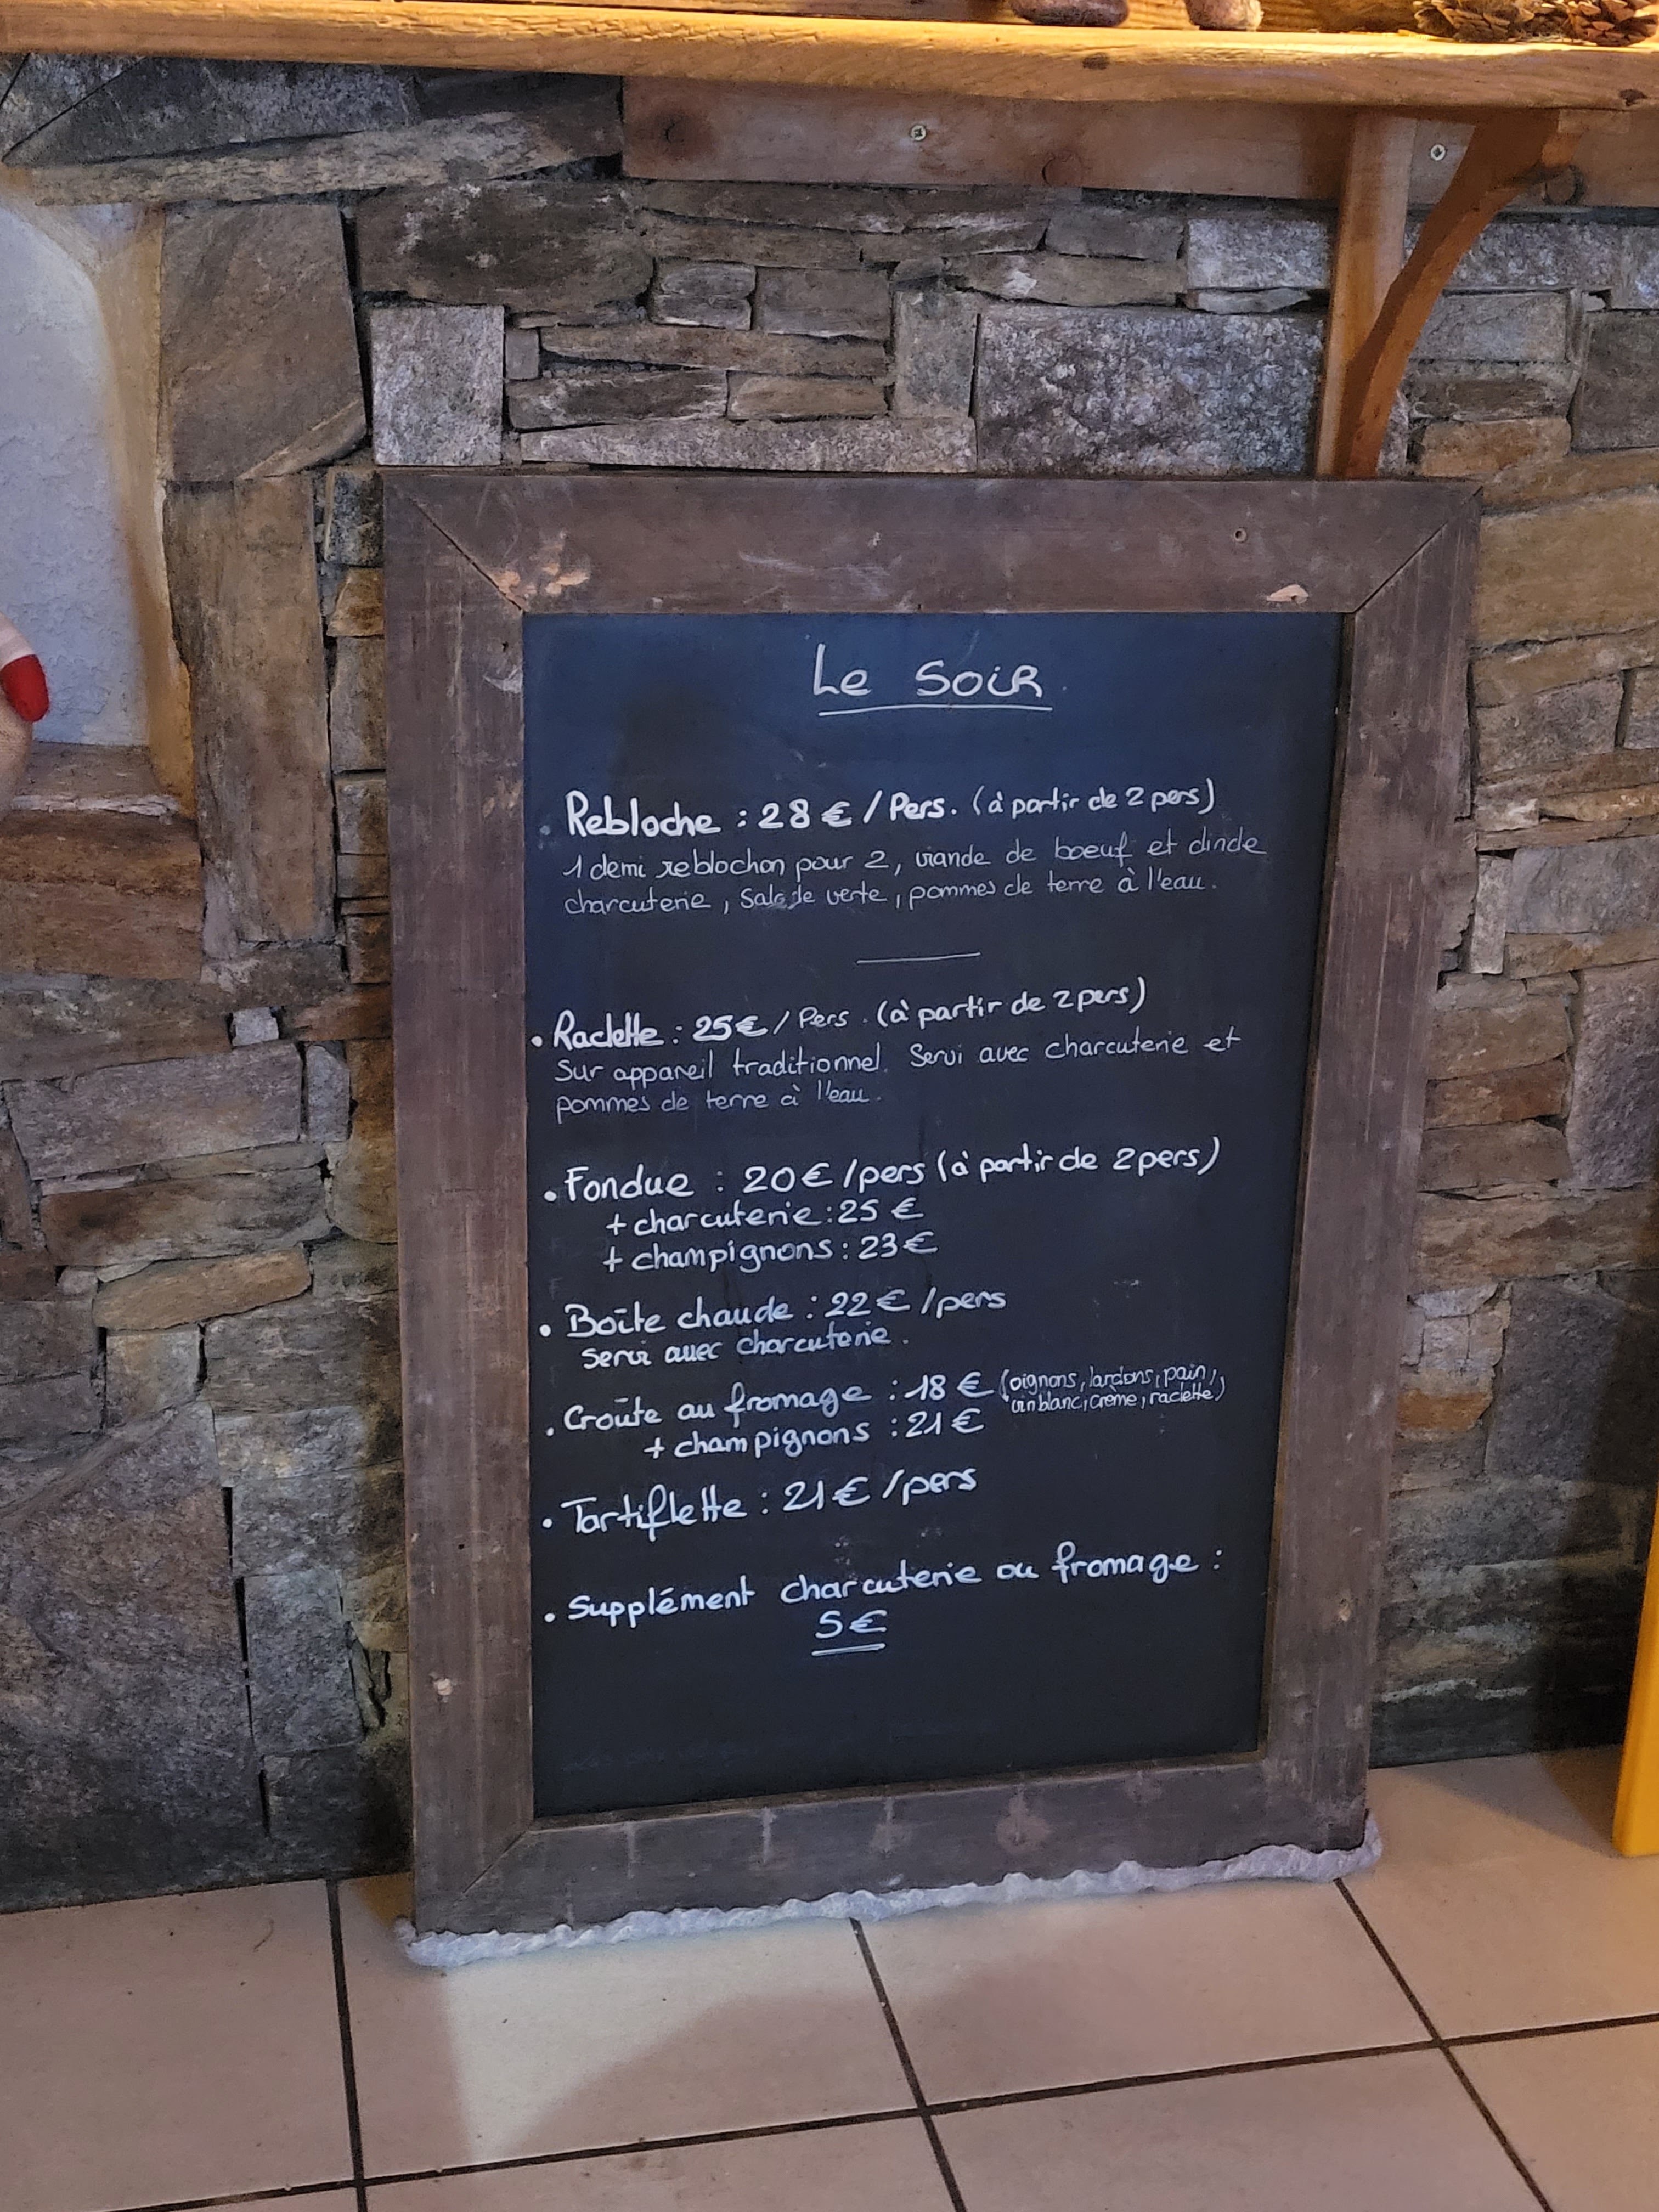 Le Soir
• Rebloche : 28 € / Pers. (à partir de 2 pers)
1 demi reblochon pour 2, viande de boeuf et dinde
charcuterie, Salade verte, pommes de terre à l'eau.
• Raclette : 25€ / Pers. (à partir de 2 pers)
Sur appareil traditionnel. Servi avec charcuterie et
pommes de terre à l'eau.
• Fondue : 20€ /pers (à partir de 2 pers)
+ charcuterie : 25 €
+ champignons : 23€
• Boîte chaude : 22 € /pers
Servi avec charcuterie.
• Croûte au fromage : 18 € (oignons, lardons, pain,
vin blanc, crème, raclette)
+ champignons : 21 €
• Tartiflette : 21€ /pers
• Supplément charcuterie ou fromage :
5€